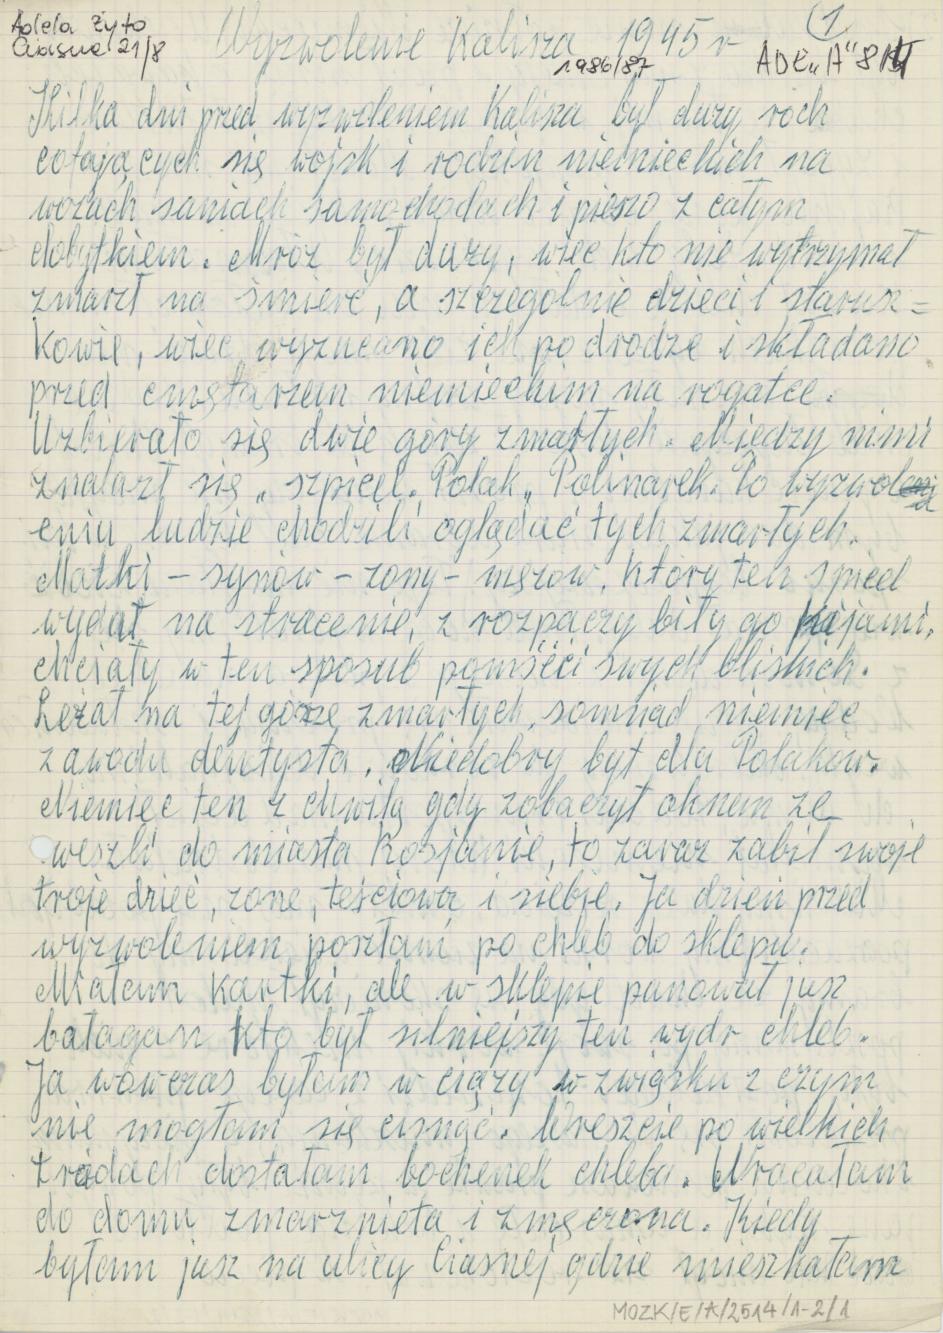 Adela Żyto
Ciasna 21/8
Wyzwolenie Kalisza 1945 r
1
1986/87
ADE „A" 8/
Kilka dni przed wyzwoleniem Kalisza był duży róch
cofających się wojsk i rodzin niemieckich na
wozach saniach samochodach i pieszo z całym
dobytkiem. Mróz był duży, wiec kto nie wytrzymał
zmarzł na śmierć, a szczególnie dzieci i starusz=
kowie, wiec wyrzucano ich po drodze i składano
przed cmętarzem niemieckim na rogatce.
Uzbierało się dwie góry zmarłych. Między nimi
znalazł się „ szpicel. Polak „ Polinarek. Po wyzwol
eniu ludzie chodzili oglądać tych zmarłych.
Matki – synów – żony – mężów. który ten spicel
wydał na stracenie, z rozpaczy biły go kijami,
chciały w ten sposub pomścić swych bliskich.
Leżał na tej górze zmarłych, somsiad niemiec
zawodu dentysta. Niedobry był dla Polaków.
Niemiec ten z chwilą gdy zobaczył oknem że
weszli do miasta Rosjanie, to zaraz zabił swoje
troje dzieć, żone, teściową i siebie. Ja dzień przed
wyzwoleniem poszłam po chleb do sklepu.
Miałam kartki, ale w sklepie panował jusz
bałagan kto był silniejszy ten wydr chleb.
Ja wówczas byłam w ciąży w związku z czym
nie mogłam się cisnąć. Wreszcie po wielkich
trudach dostałam bochenek chleba. Wracałam
do domu zmarznieta i zmęczona. Kiedy
byłam jusz na ulicy Ciasnej gdzie mieszkałam
MOZK/E/A/2514/1-2/1